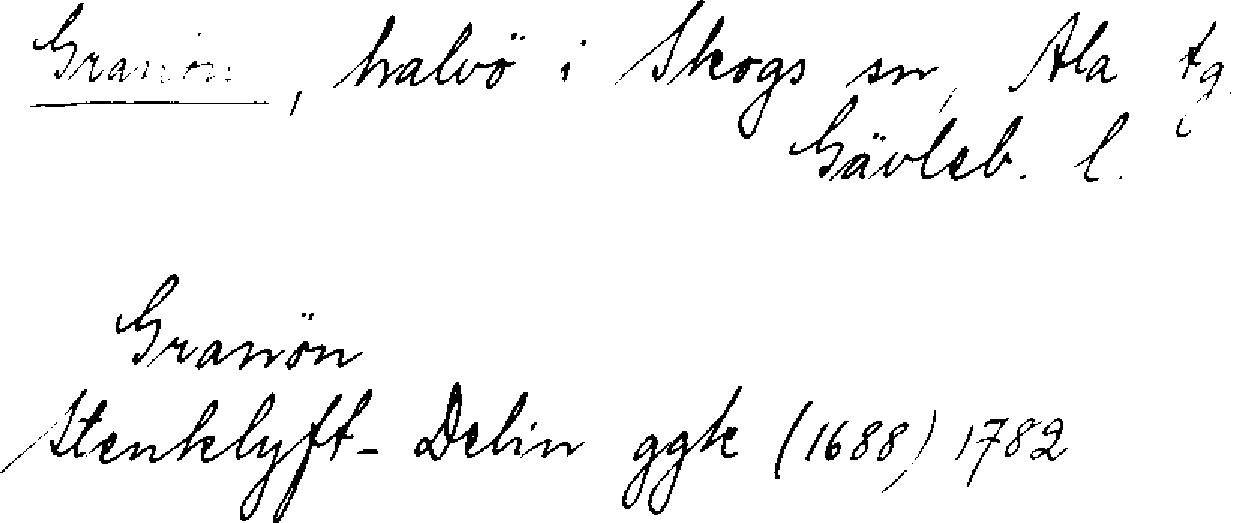 Granön, halvö i Skogs sn, Ala tg.
Gävleb. l.
Granön
Stenklyft- Delin ggk (1688) 1782